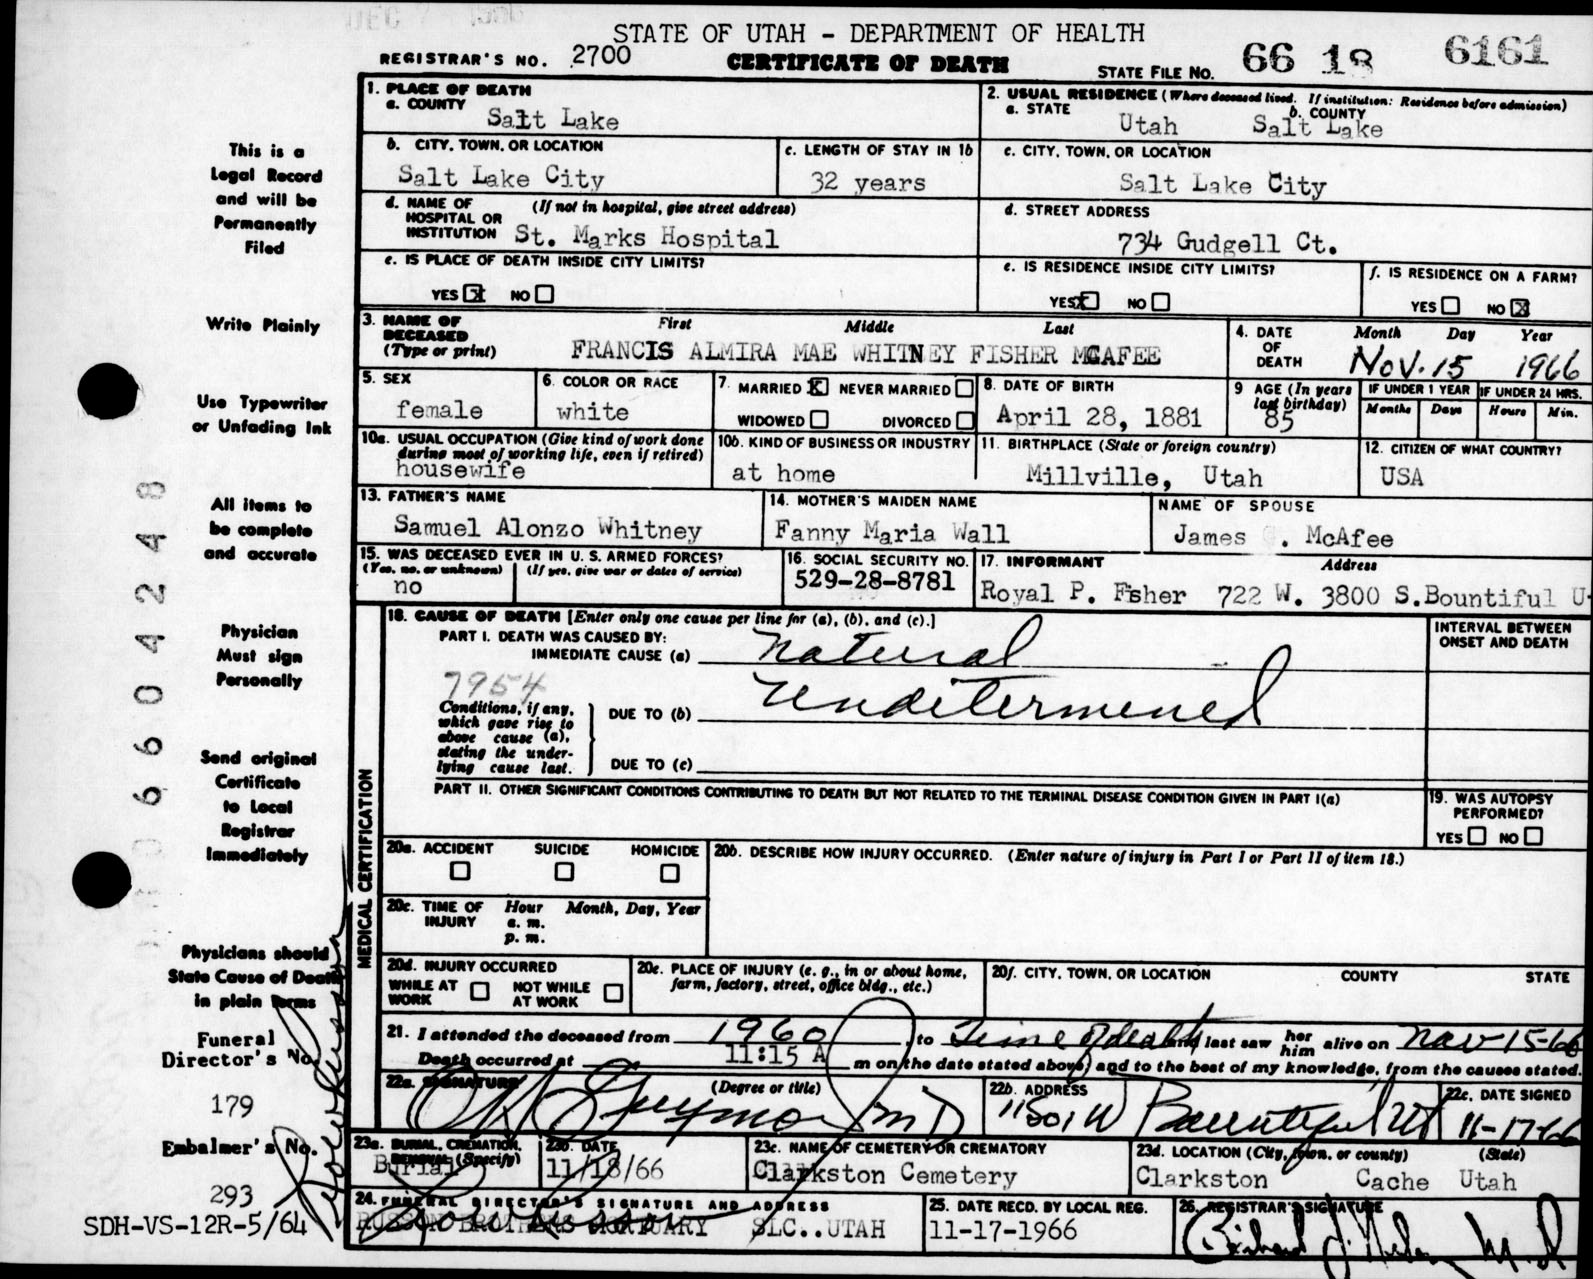 STATE OF UTAH - DEPARTMENT OF HEALTH
REGISTRAR'S NO. 2700
CERTIFICATE OF DEATH
STATE FILE NO. 66 18 6161
This is a
Legal Record
and will be
Permanently
Filed
Write Plainly
Use Typewriter
or Unfading Ink
All items to
be complete
and accurate
Physician
Must sign
Personally
Send original
Certificate
to Local
Registrar
Immediately
Physicians should
State Cause of Death
in plain terms
Funeral
Director's No.
179
Embalmer's No.
293
SDH-VS-12R-5/64
1. PLACE OF DEATH
a. COUNTY
Salt Lake
2. USUAL RESIDENCE (Where deceased lived. If institution: Residence before admission)
a. STATE b. COUNTY
Utah Salt Lake
b. CITY, TOWN, OR LOCATION
Salt Lake City
c. LENGTH OF STAY IN 1b
32 years
c. CITY, TOWN, OR LOCATION
Salt Lake City
d. NAME OF HOSPITAL OR INSTITUTION (If not in hospital, give street address)
St. Marks Hospital
d. STREET ADDRESS
734 Gudgell Ct.
e. IS PLACE OF DEATH INSIDE CITY LIMITS?
YES X NO
e. IS RESIDENCE INSIDE CITY LIMITS?
YES X NO
f. IS RESIDENCE ON A FARM?
YES NO X
3. NAME OF DECEASED (Type or print)
First Middle Last
FRANCIS ALMIRA MAE WHITNEY FISHER MCAFEE
4. DATE OF DEATH
Month Day Year
Nov. 15 1966
5. SEX
female
6. COLOR OR RACE
white
7. MARRIED X NEVER MARRIED
WIDOWED DIVORCED
8. DATE OF BIRTH
April 28, 1881
9 AGE (In years last birthday)
85
IF UNDER 1 YEAR
Months Days
IF UNDER 24 HRS.
Hours Min.
10a. USUAL OCCUPATION (Give kind of work done during most of working life, even if retired)
housewife
10b. KIND OF BUSINESS OR INDUSTRY
at home
11. BIRTHPLACE (State or foreign country)
Millville, Utah
12. CITIZEN OF WHAT COUNTRY?
USA
13. FATHER'S NAME
Samuel Alonzo Whitney
14. MOTHER'S MAIDEN NAME
Fanny Maria Wall
NAME OF SPOUSE
James . McAfee
15. WAS DECEASED EVER IN U. S. ARMED FORCES?
(Yes, no, or unknown) (If yes, give war or dates of service)
no
16. SOCIAL SECURITY NO.
529-28-8781
17. INFORMANT Address
Royal P. Fisher 722 W. 3800 S.Bountiful U
18. CAUSE OF DEATH [Enter only one cause per line for (a), (b), and (c).]
PART I. DEATH WAS CAUSED BY:
IMMEDIATE CAUSE (a) Natural
INTERVAL BETWEEN ONSET AND DEATH
7954
Conditions, if any, which gave rise to above cause (a), stating the underlying cause last.
DUE TO (b) Undetermened
DUE TO (c)
PART II. OTHER SIGNIFICANT CONDITIONS CONTRIBUTING TO DEATH BUT NOT RELATED TO THE TERMINAL DISEASE CONDITION GIVEN IN PART I(a)
19. WAS AUTOPSY PERFORMED?
YES NO
MEDICAL CERTIFICATION
20a. ACCIDENT SUICIDE HOMICIDE
20b. DESCRIBE HOW INJURY OCCURRED. (Enter nature of injury in Part I or Part II of item 18.)
20c. TIME OF INJURY Hour Month, Day, Year
a. m.
p. m.
20d. INJURY OCCURRED
WHILE AT WORK NOT WHILE AT WORK
20e. PLACE OF INJURY (e. g., in or about home, farm, factory, street, office bldg., etc.)
20f. CITY, TOWN, OR LOCATION COUNTY STATE
21. I attended the deceased from 1960, to Time of death and last saw her him alive on Nov-15-66
Death occurred at 11:15 A m on the date stated above; and to the best of my knowledge, from the causes stated.
22a. SIGNATURE (Degree or title)
MD
22b. ADDRESS
Bountiful Ut
22c. DATE SIGNED
11-17-66
23a. BURIAL, CREMATION, REMOVAL (Specify)
Burial
23b. DATE
11/18/66
23c. NAME OF CEMETERY OR CREMATORY
Clarkston Cemetery
23d. LOCATION (City, town, or county) (State)
Clarkston Cache Utah
24. FUNERAL DIRECTOR'S SIGNATURE AND ADDRESS
BROTHERS MORTUARY SLC..UTAH
25. DATE RECD. BY LOCAL REG.
11-17-1966
26. REGISTRAR'S SIGNATURE
6604248